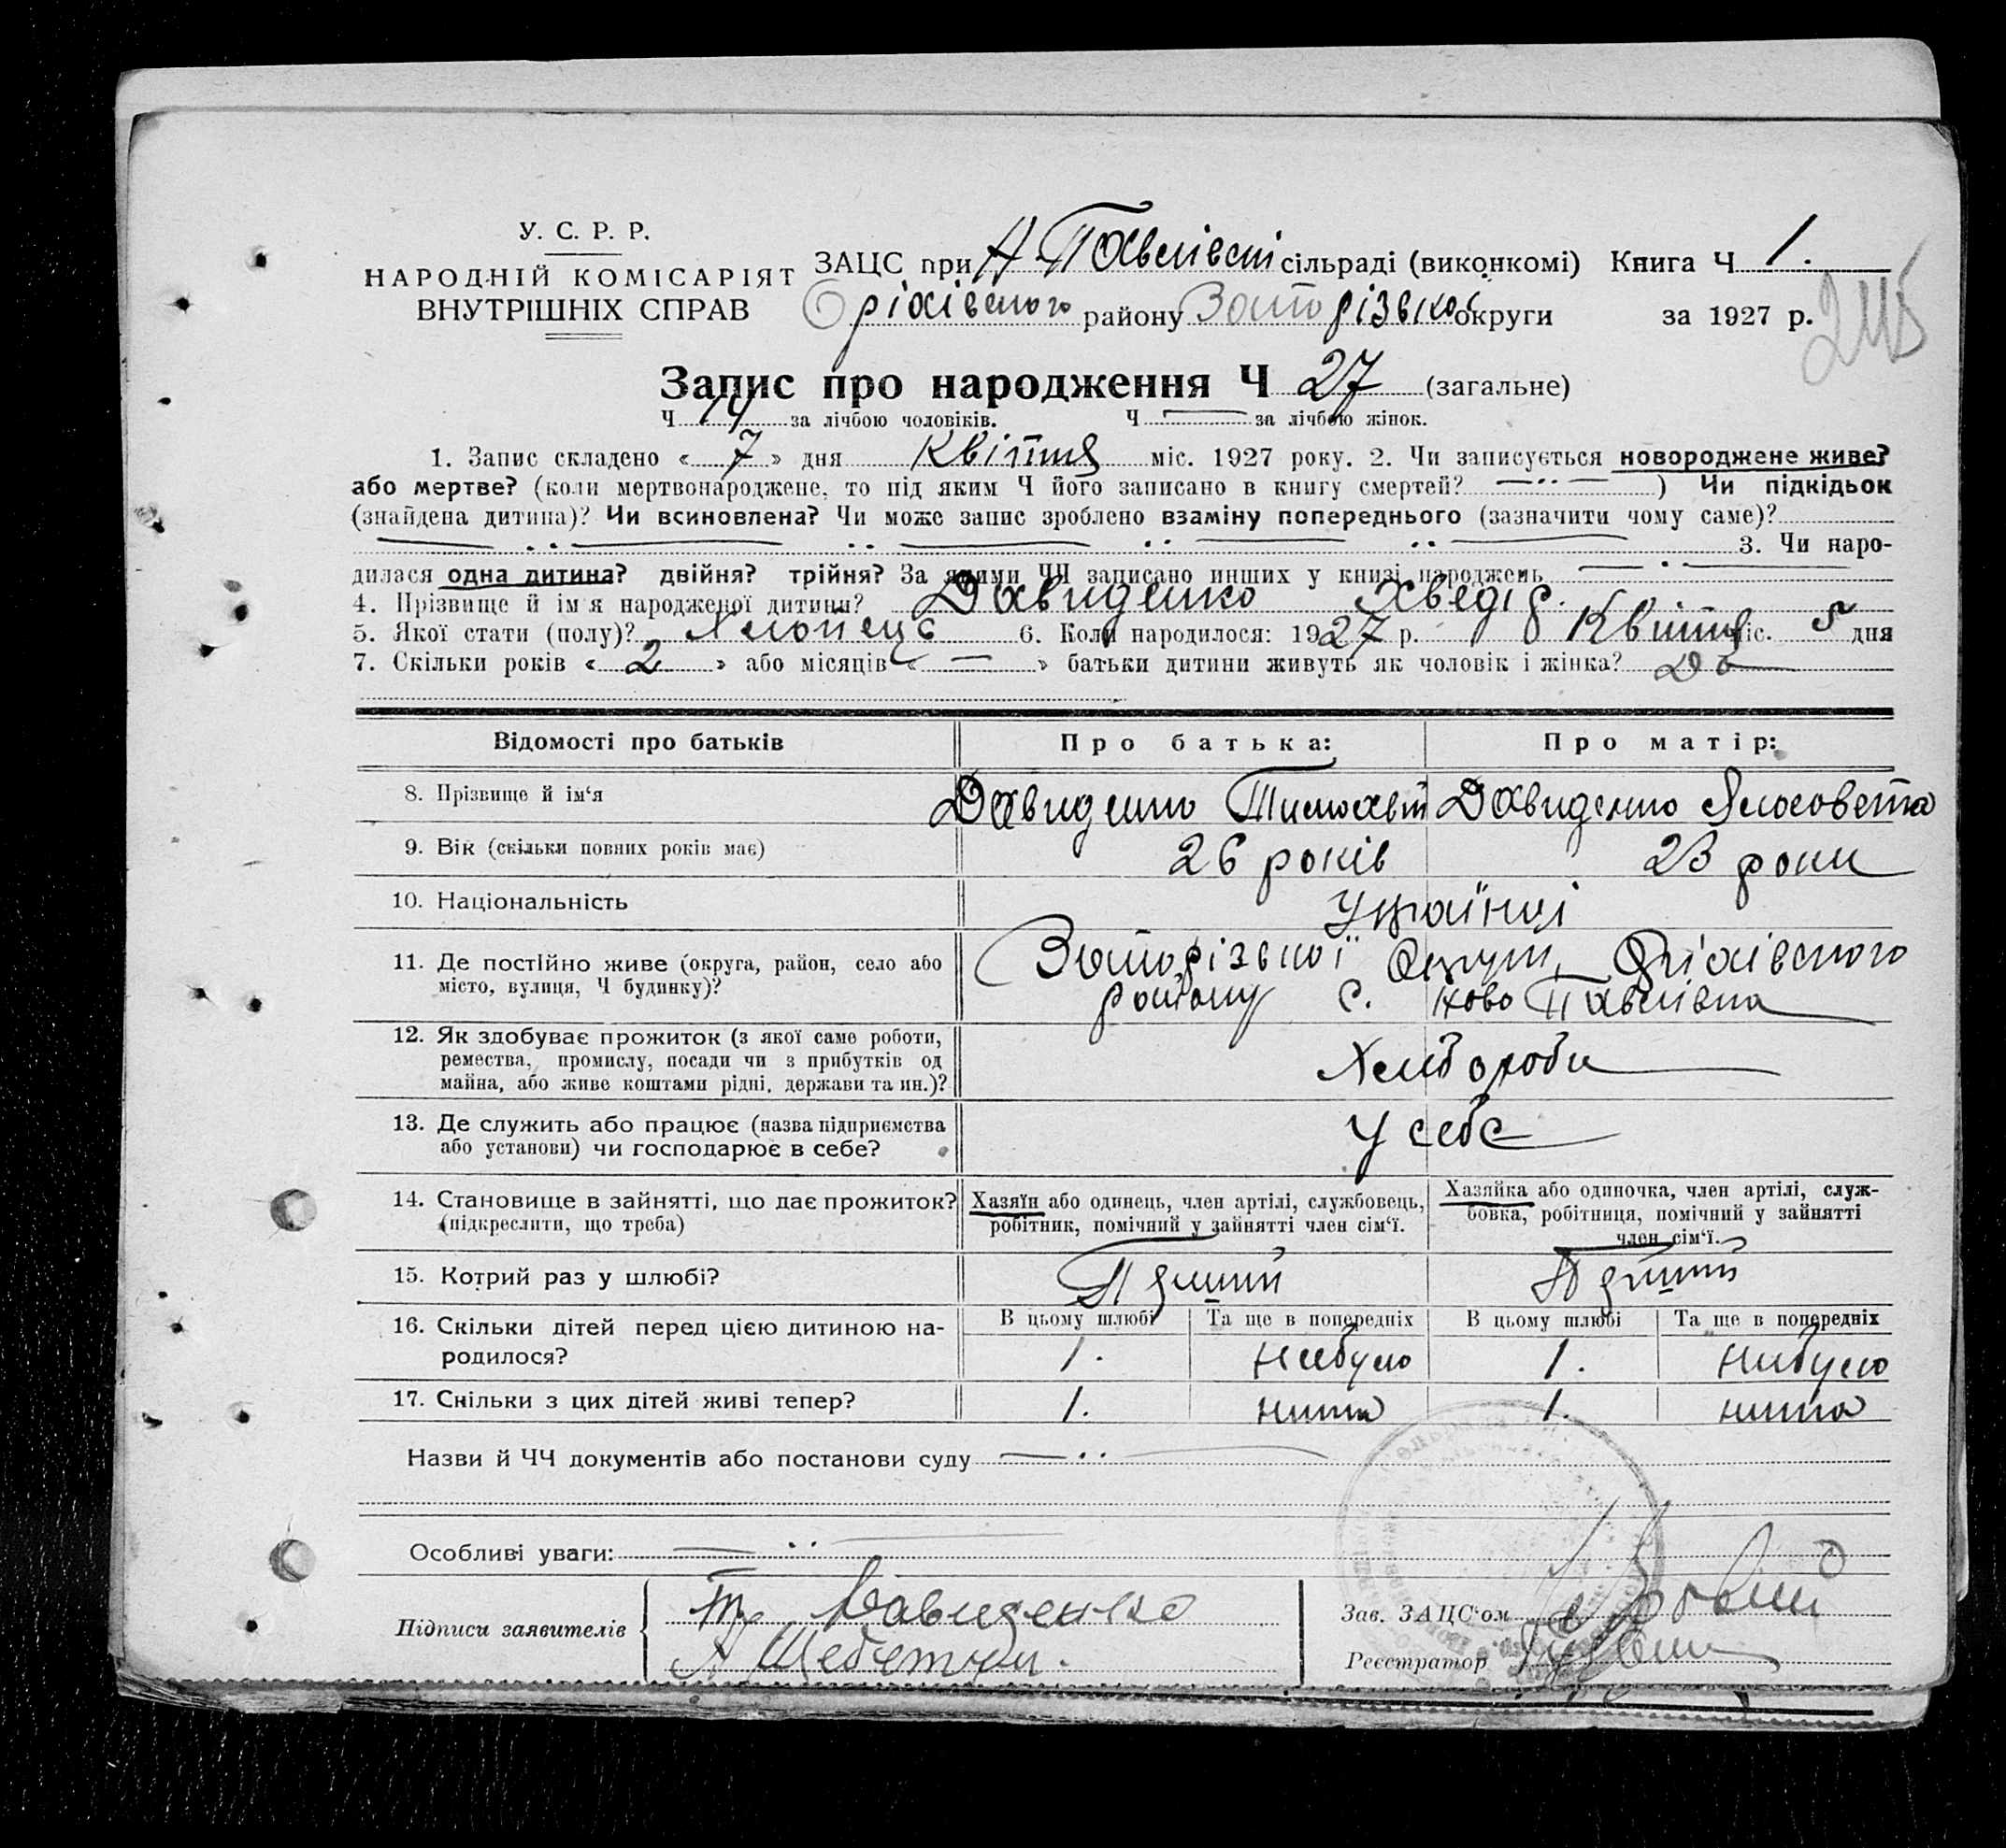 У. С. Р. Р.
НАРОДНІЙ КОМІСАРІЯТ
ВНУТРІШНІХ СПРАВ
ЗАЦС при Н Павлівській сільраді (виконкомі) Книга Ч 1.
Оріхівського району Запорізької округи за 1927 р.
245
Запис про народження Ч 27 (загальне)
Ч 14 за лічбою чоловіків. Ч — за лічбою жінок.
1. Запис складено « 7 » дня Квітня міс. 1927 року. 2. Чи записується новороджене живе?
або мертве? (коли мертвонароджене, то під яким Ч його записано в книгу смертей? — ) Чи підкідьок
(знайдена дитина)? Чи всиновлена? Чи може запис зроблено взаміну попереднього (зазначити чому саме)?
3. Чи наро-
дилася одна дитина? двійня? трійня? За якими ЧЧ записано инших у книзі народжень
4. Прізвище й ім'я народженої дитини? Давиденко Хведір.
5. Якої стати (полу)? Хлопець 6. Коли народилося: 1927 р. Квітня міс. 5 дня
7. Скільки років « 2 » або місяців « — » батьки дитини живуть як чоловік і жінка? 2
Відомості про батьків Про батька: Про матір:
8. Прізвище й ім'я Давиденко Давиденко
9. Вік (скільки повних років має) 26 років 23 роки
10. Національність Українці
11. Де постійно живе (округа, район, село або Запорізької Округи, Оріхівського
місто, вулиця, Ч будинку)? району с. Ново Павлівка
12. Як здобуває прожиток (з якої саме роботи,
ремества, промислу, посади чи з прибутків од Хлібороби
майна, або живе коштами рідні, держави та ин.)?
13. Де служить або працює (назва підприємства У себе
або установи) чи господарює в себе?
14. Становище в зайнятті, що дає прожиток? Хазяїн або одинець, член артілі, службовець, Хазяйка або одиночка, член артілі, служ-
(підкреслити, що треба) робітник, помічний у зайнятті член сім'ї. бовка, робітниця, помічний у зайнятті
член сім'ї.
15. Котрий раз у шлюбі? Перший Перший
16. Скільки дітей перед цією дитиною на- В цьому шлюбі Та ще в попередніх В цьому шлюбі Та ще в попередніх
родилося? 1. небуло 1. небуло
17. Скільки з цих дітей живі тепер? 1. нима 1. нима
Назви й ЧЧ документів або постанови суду
Особливі уваги:
Підписи заявителів Т Давиденко
Зав. ЗАЦС'ом
Реєстратор